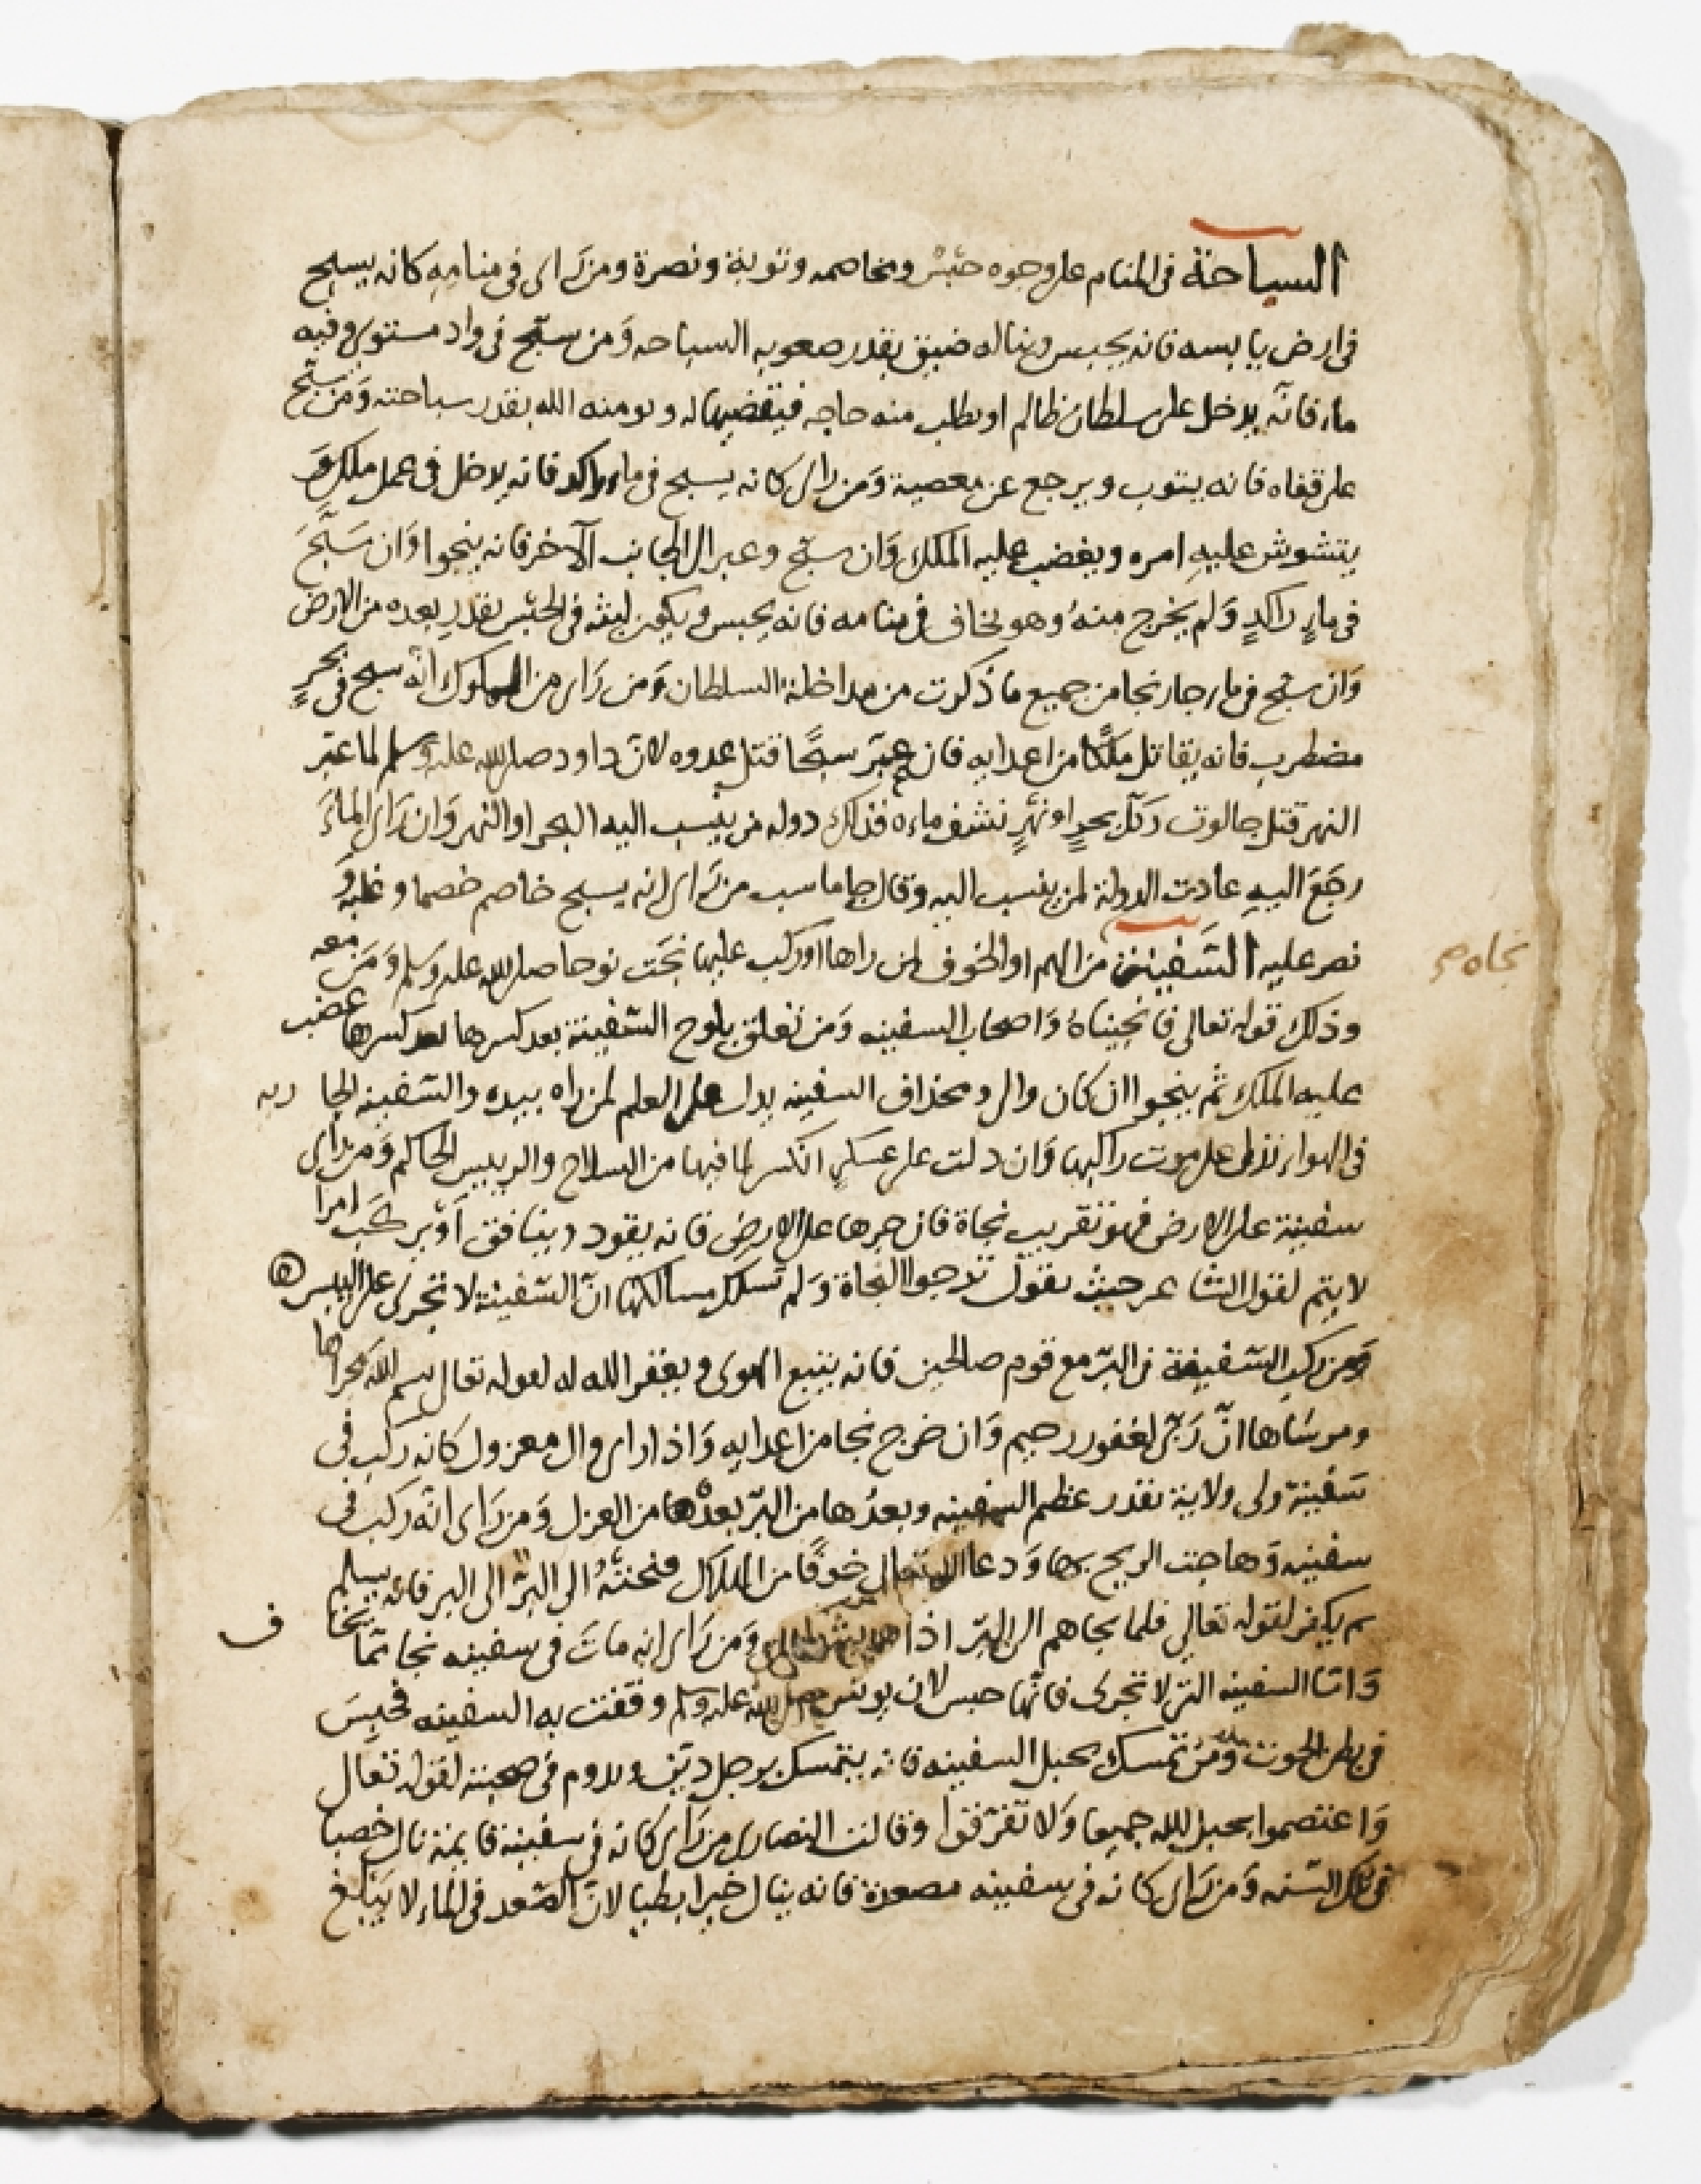 السباحة فى المنام على وجوه حبس ومخاصمه وتوبة ونصرة ومن راى فى منامه كانه يسبح
فى ارض يابسه فانه يحبس ويناله ضيق بقدر صعوبه السباحه وَمن سبح فى واد مستوى وفيه
ماء فانه يدخل على سلطان ظالم او يطلب منه حاجه فيقضيها له ويومنه الله بقدر سباحته وَمَن سبح
على قفاه فانه يتوب ويرجع عن معصية وَمن راى كانه يسبح فى ماء راكد فانه يدخل فى عمل ملك وَ
يتشوش عليهِ امره ويغضب عليه الملك وَان سبح وعبر الى الجانب الآخر فانه ينجوا وَان سَبَّحَ
فى ماءٍ راكدٍ وَلم يخرج منهُ وهو يخاف فى منامه فانه يحبس ويكون لبثه فى الحبس بقدر بعده من الارض
وَان سبح فى ماء جار نجا من جميع ما ذكرت من مداخلة السلطان وَمن رَاى من الملوك انّه سبح فى بحرٍ
مضطرب فانه يقاتل ملكًا من اعدايه فان عبر سبحًا قتل عدوه لانّ داود صلى الله عليه وسلم لما عبر
النهر قتل جالوت وَكل بحرٍ او نهرٍ نشف ماءه فذلك دوله من ينسب اليه البحر او النهر وَان رَاى الماءَ
رجَعَ اليهِ عادت الدولة لمن ينسب اليه وقال جاماسب من رَاى انه يسبح خاصم خصما وغلبهُ وَ
نصر عليه السَفينة من الهم او الخوف لمن راها او ركب عليها نجَت نوحا صلى الله عليه وَسلم وَمَن معه
نجاه صح
وذلك قوله تعالى فانجيناهُ وَاصحاب السفينه وَمن تعلق بلوح السّفينة بعد كسرها بعد كسرها غضب
عليه الملك ثم ينجوا ان كان وال ومخذاف السفينه يدل على العلم لمن راه بيده والسّفينه الجا ريه
فى الهواء تدل على موت راكبها وَان دلت على عسكرٍ انكسر لما فيها من السلاح والرييس الحاكم وَمن رَاى
سفينة على الارض فهو تقريب نجاة فان جرها على الارض فانه يقود دينا فق اَو يركب امرا
لا يتم لقول الشاعر حيث يقول ترجوا النجاة وَلم تسلك مسالكها انّ السّفينة لا تجرى على اليبس
وَمن ركب السّفينة فى البرّ مع قوم صالحين فانه يتبع الهوى ويغفر الله له لقوله تعالى بسم الله مجراها
ومرسَاها انّ رَبّى لغفور رحيم وَان خرج نجا من اعدايه وَاذا راى وال معزول كانه ركب فى
سَفينة ولى ولاية بقدر عظم السفينه وبعدُها من البرّ بعدُها من العزل وَمن رَاى انّه ركب فى
سفينه وَهاجت الريح بها وَدعا الله تعالى خوفًا من الهلاك فنجتهُ الى البرّ الى البر فانه يسلم
ثم يكفر لقوله تعالى فلما نجاهم الى البرّ اذا هم يشركون وَمن رَاى انه ماتَ فى سفينه نجا ممّا يخا ف
وَامّا السفينه التى لا تجرى فانّها حبس لان يونس صلى الله عليه وسلم وقفت به السفينه فحبِسَ
فى بطن الحوت وَمن تمسك بحبل السفينه فانه يتمسك برجل ديّن ويدوم فى صحبته لقوله تعالى
وَاعتصموا بحبل الله جميعا وَلا تفرّقوا وقالت النصارى من رَاى كانه فى سفينة فا بمنه نال خصبا
فى تلك السّنه وَمن رَاى كانه فى سفينه مصعدة فانه ينال خيرا بطيا لانّ الصّعد فى الماء لا يَبلغ